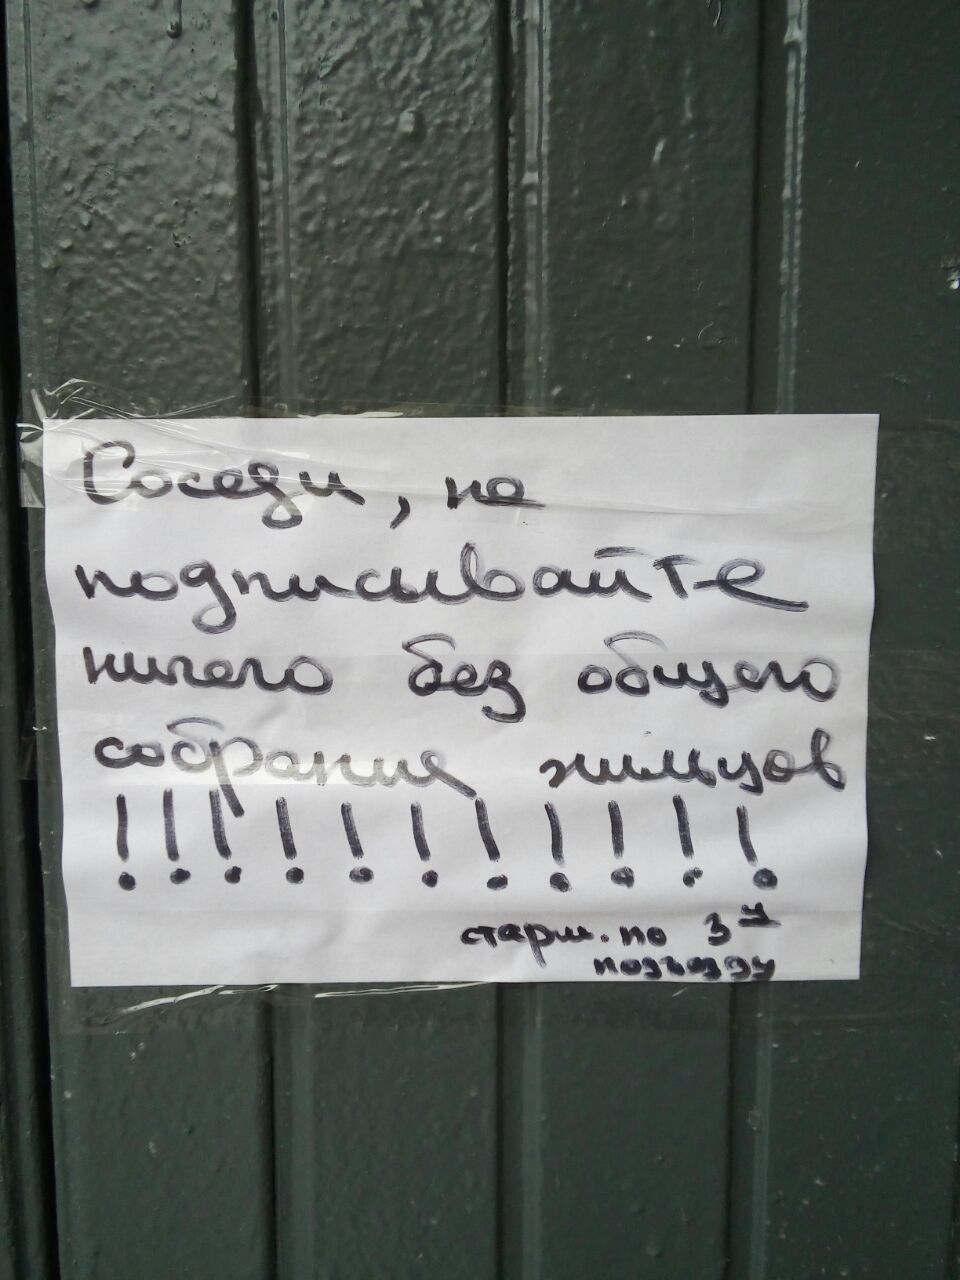 Соседи, не
подписывайте
ничего без общего
собрание жильцов
!!!!!!!!!!!
старш. по 3у
подъезду